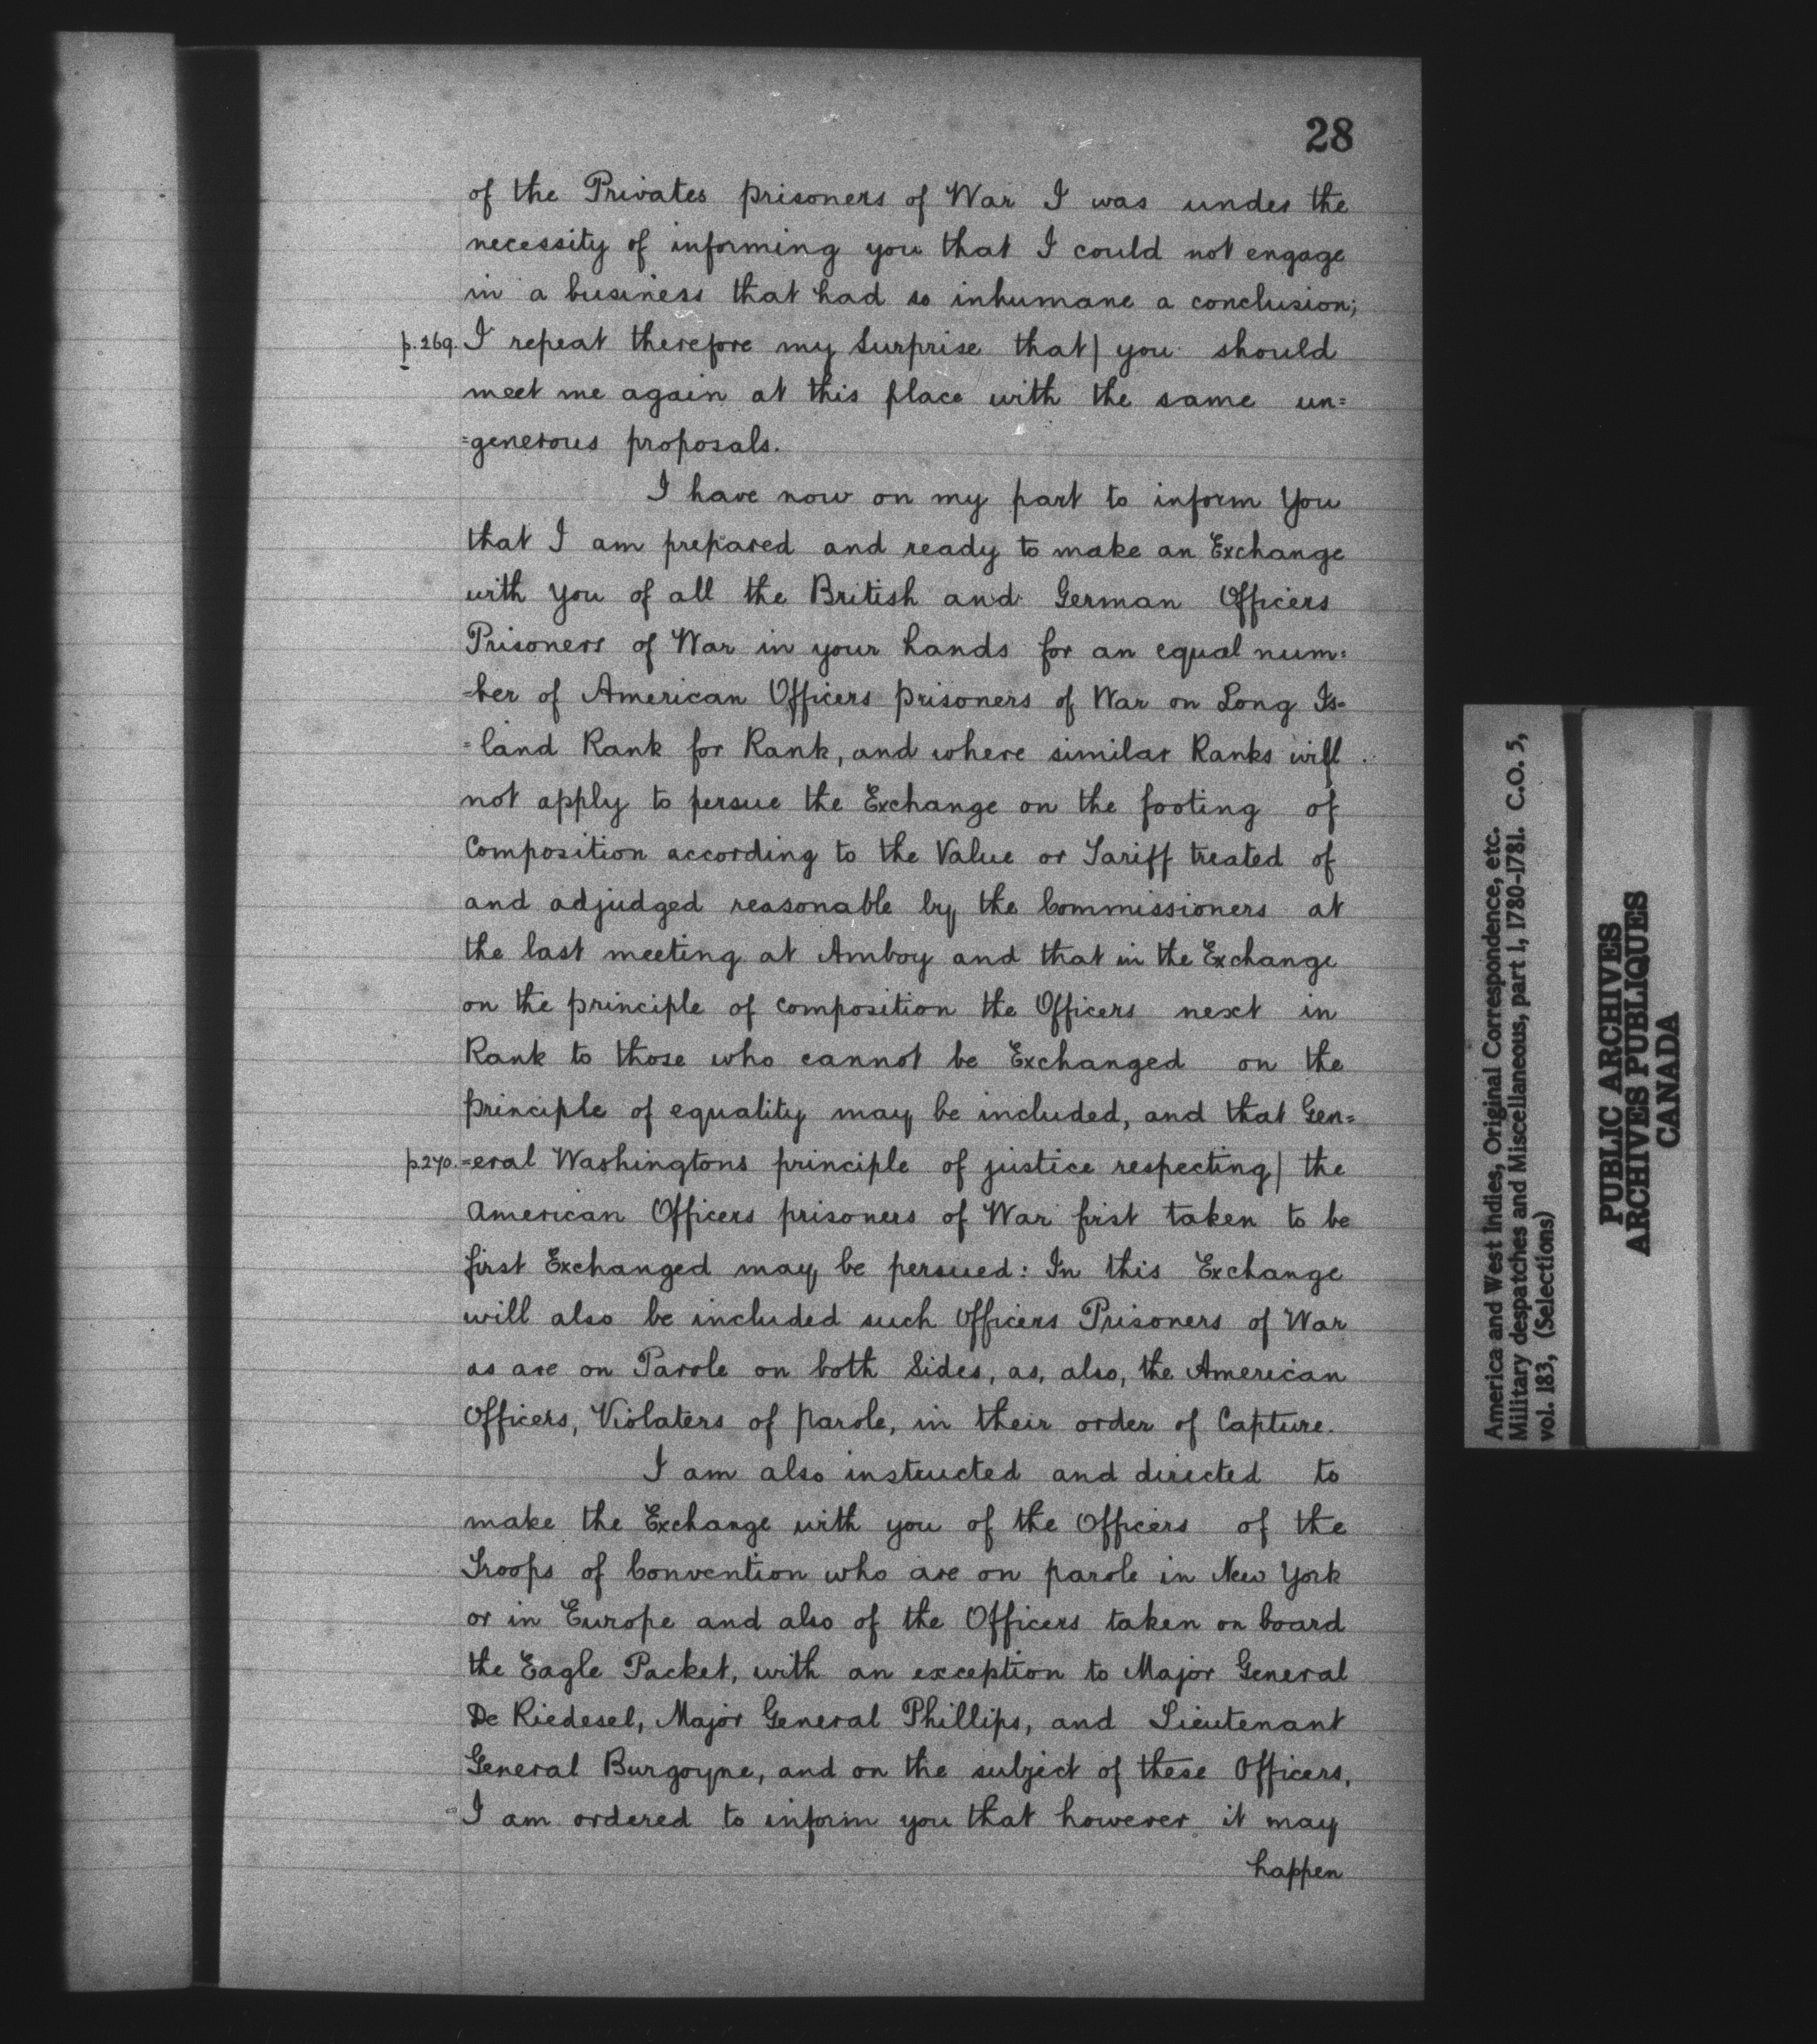 28
of the Privates prisoners of War I was under the
necessity of informing you that I could not engage
in a business that had so inhumane a conclusion;
p.269. I repeat therefore my Surprise that) you should
meet me again at this place with the same un=
=generous proposals.
I have now on my part to inform You
that I am prepared and ready to make an Exchange
with you of all the British and German Officers
Prisoners of War in your hands for an equal num=
=ber of American Officers prisoners of War on Long Is=
=land Rank for Rank, and where similar Ranks will
not apply to persue the Exchange on the footing of
Composition according to the Value or Tariff treated of
and adjudged reasonable by the Commissioners at
the last meeting at Amboy and that in the Exchange
on the principle of composition the Officers next in
Rank to those who cannot be Exchanged on the
principle of equality may be included, and that Gen=
p.270. =eral Washingtons principle of justice respecting) the
American Officers prisoners of War first taken to be
first Exchanged may be persued: In this Exchange
will also be included such Officers Prisoners of War
as are on Parole on both Sides, as, also, the American
Officers, Violaters of parole, in their order of Capture.
I am also instructed and directed to
make the Exchange with you of the Officers of the
Troops of Convention who are on parole in New York
or in Europe and also of the Officers taken on board
the Eagle Packet, with an exception to Major General
De Riedesel, Major General Phillips, and Lieutenant
General Burgoyne, and on the subject of these Officers,
I am ordered to inform you that however it may
happen
America and West Indies, Original Correspondence, etc.
Military despatches and Miscellaneous, part 1, 1780-1781. C.O. 5,
vol. 183, (Selections)
PUBLIC ARCHIVES
ARCHIVES PUBLIQUES
CANADA